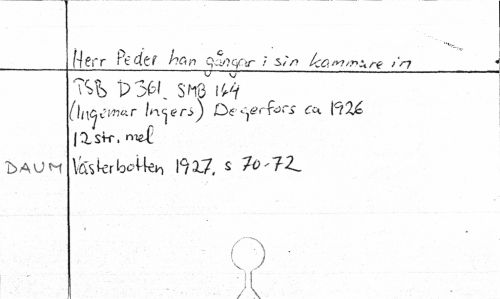 Herr Peder han gångar i sin kammare in
TSB D 361. SMB 164
(Ingemar Ingers) Degerfors ca 1926
12 str. mel
DAUM Västerbotten 1927, s 70-72